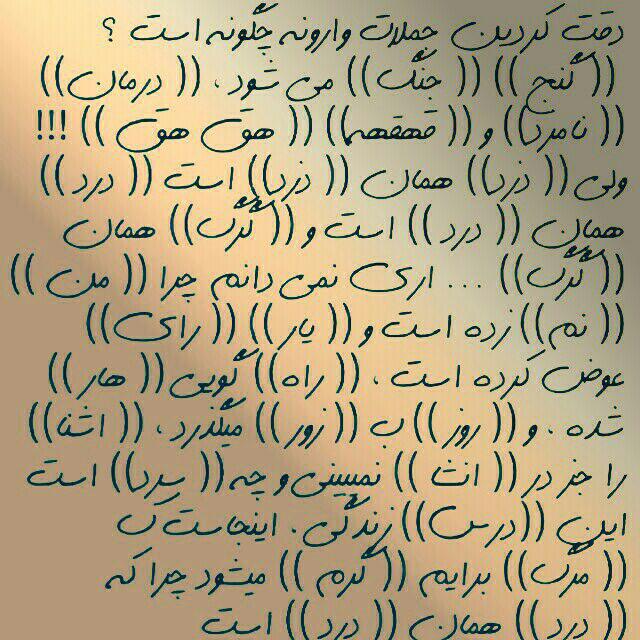 دقت کردین جملات وارونه چگونه است ؟
(( گنج )) (( جنگ )) می شود ، (( درمان ))
(( نامرد )) و (( قهقهه )) (( هق هق )) !!!
ولی (( دزد )) همان (( دزد )) است (( درد ))
همان (( درد )) است و (( گرگ )) همان
(( گرگ )) ... اری نمی دانم چرا (( من ))
(( نم )) زده است و (( یار )) (( رای ))
عوض کرده است ، (( راه )) گویی (( هار ))
شده ، و (( روز )) ب (( زور )) میگذرد ، (( اشنا ))
را جز در (( انشا )) نمیبینی و چه (( سرد )) است
این (( درس )) زندگی . اینجاست ک
(( مرگ )) برایم (( گرم )) میشود چرا که
(( درد )) همان (( درد )) است